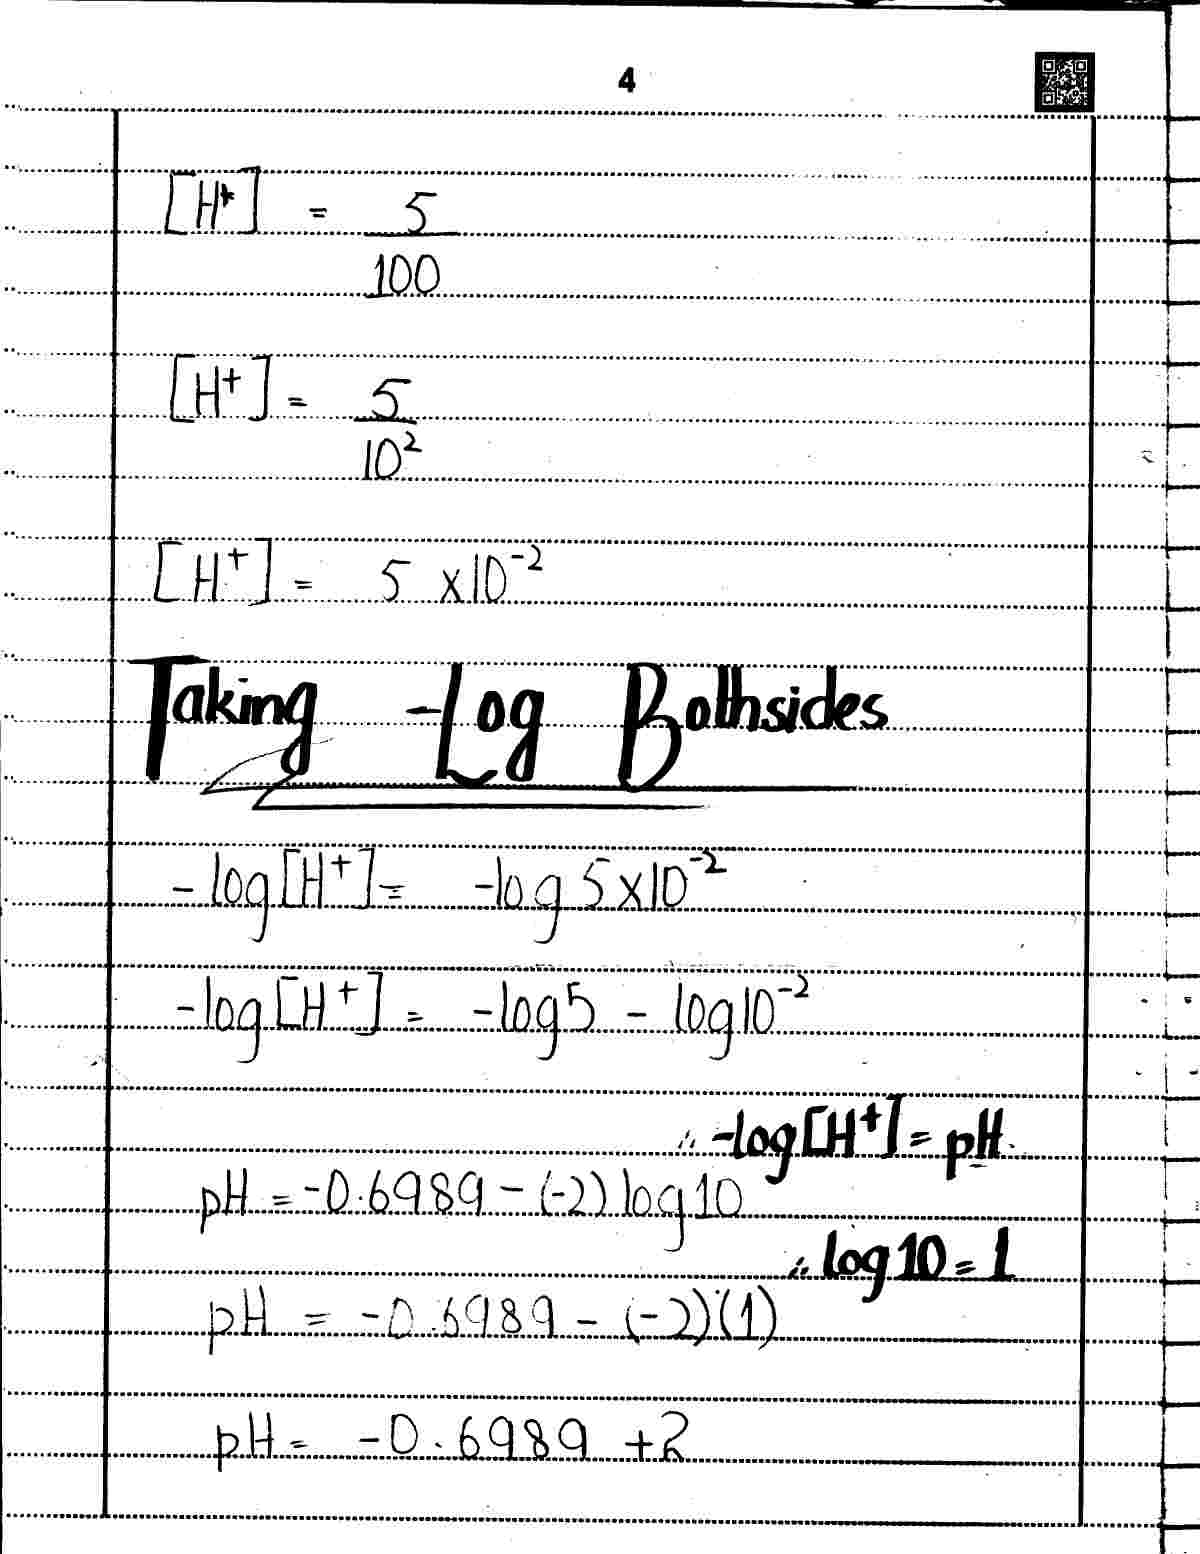 4
[H⁺] = 5
100
[H⁺] = 5
10²
[H⁺] = 5 ×10⁻²
Taking -Log Bothsides
-log[H⁺] = -log 5×10⁻²
-log[H⁺] = -log5 - log10⁻²
∴ -log[H⁺] = pH.
pH = -0.6989 - (-2)log10
∴ log10 = 1
pH = -0.6989 - (-2)(1)
pH = -0.6989 +2